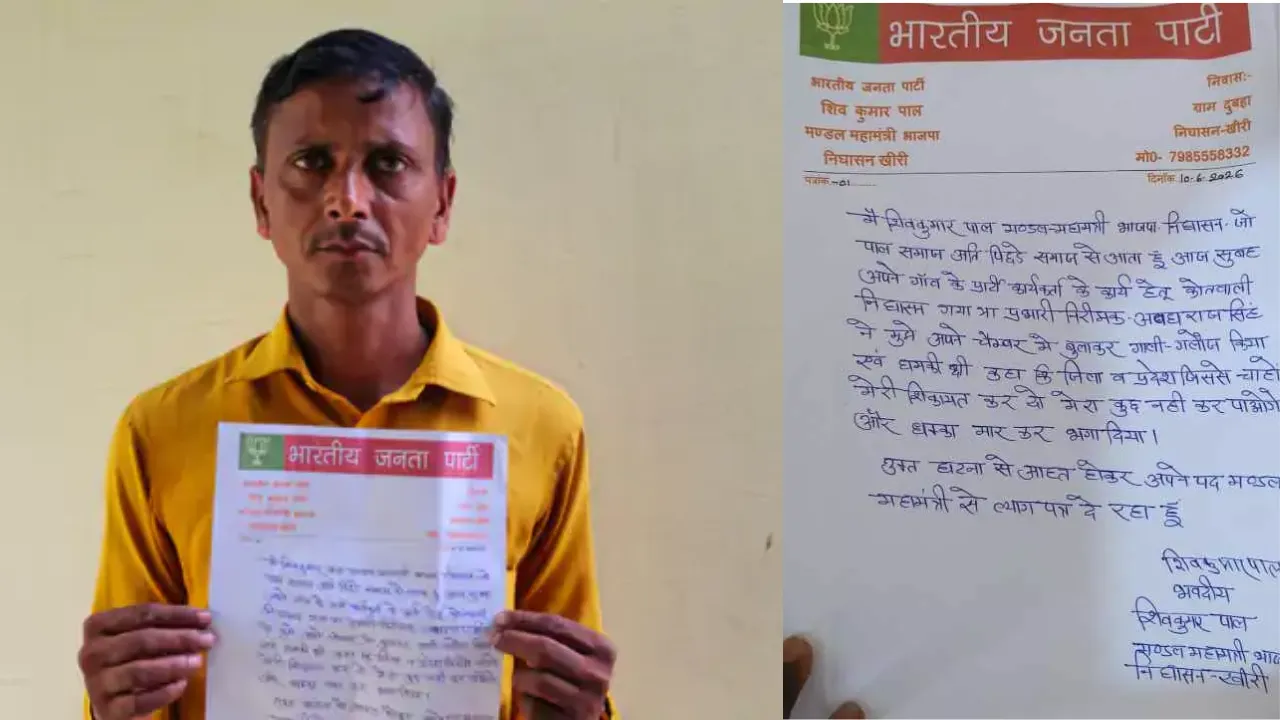 भारतीय जनता पार्टी
भारतीय जनता पार्टी
भारतीय जनता पार्टी
शिव कुमार पाल
मण्डल महामंत्री भाजपा
निघासन खीरी
निवास:-
ग्राम दुबहा
निघासन-खीरी
मो0- 7985558332
पत्रांक-01
दिनाँक 10-6-2026
मै शिवकुमार पाल मण्डल-महामंत्री भाजपा निघासन जो
पाल समाज अति पिछडे समाज से आता हूं आज सुबह
अपने गाँव के पार्टी कार्यकर्ता के कार्य हेतू कोतवाली
निघासन गया था प्रभारी निरीक्षक अवधराज सिंह
ने मुझे अपने चैम्बर मे बुलाकर गाली-गलौज किया
एवं धमकी थी कहा कि जिला व प्रदेश जिससे चाहो
मेरी शिकायत कर दो मेरा कुछ नही कर पाओगे
और धक्का मार कर भगा दिया।
उक्त घटना से आहत होकर अपने पद मण्डल
महामंत्री से त्याग पत्र दे रहा हूं
शिवकुमार पाल
भवदीय
शिवकुमार पाल
मण्डल महामंत्री भाज
निघासन-खीरी